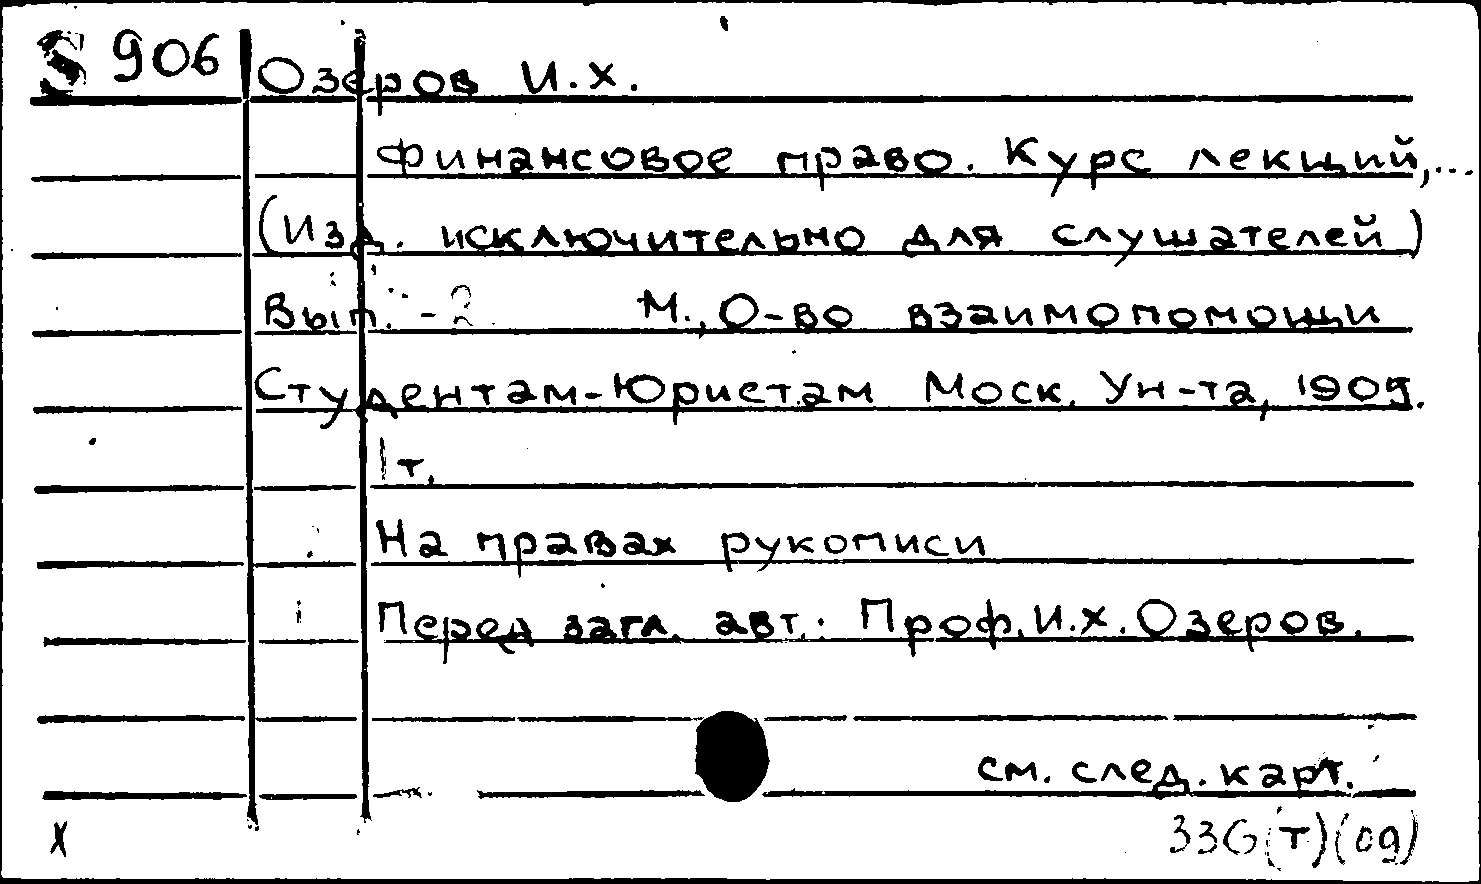 S 906 Озеров И.Х.
Финансовое право. Курс лекций,...
(Изд. исключительно для слушателей)
Вып. - 2 М., О-во взаимопомощи
Студентам-Юристам Моск. Ун-та, 1909.
1 т.
На правах рукописи
Перед загл. авт.: Проф. И.Х. Озеров.
см. след. карт.
X 336(т)(09)